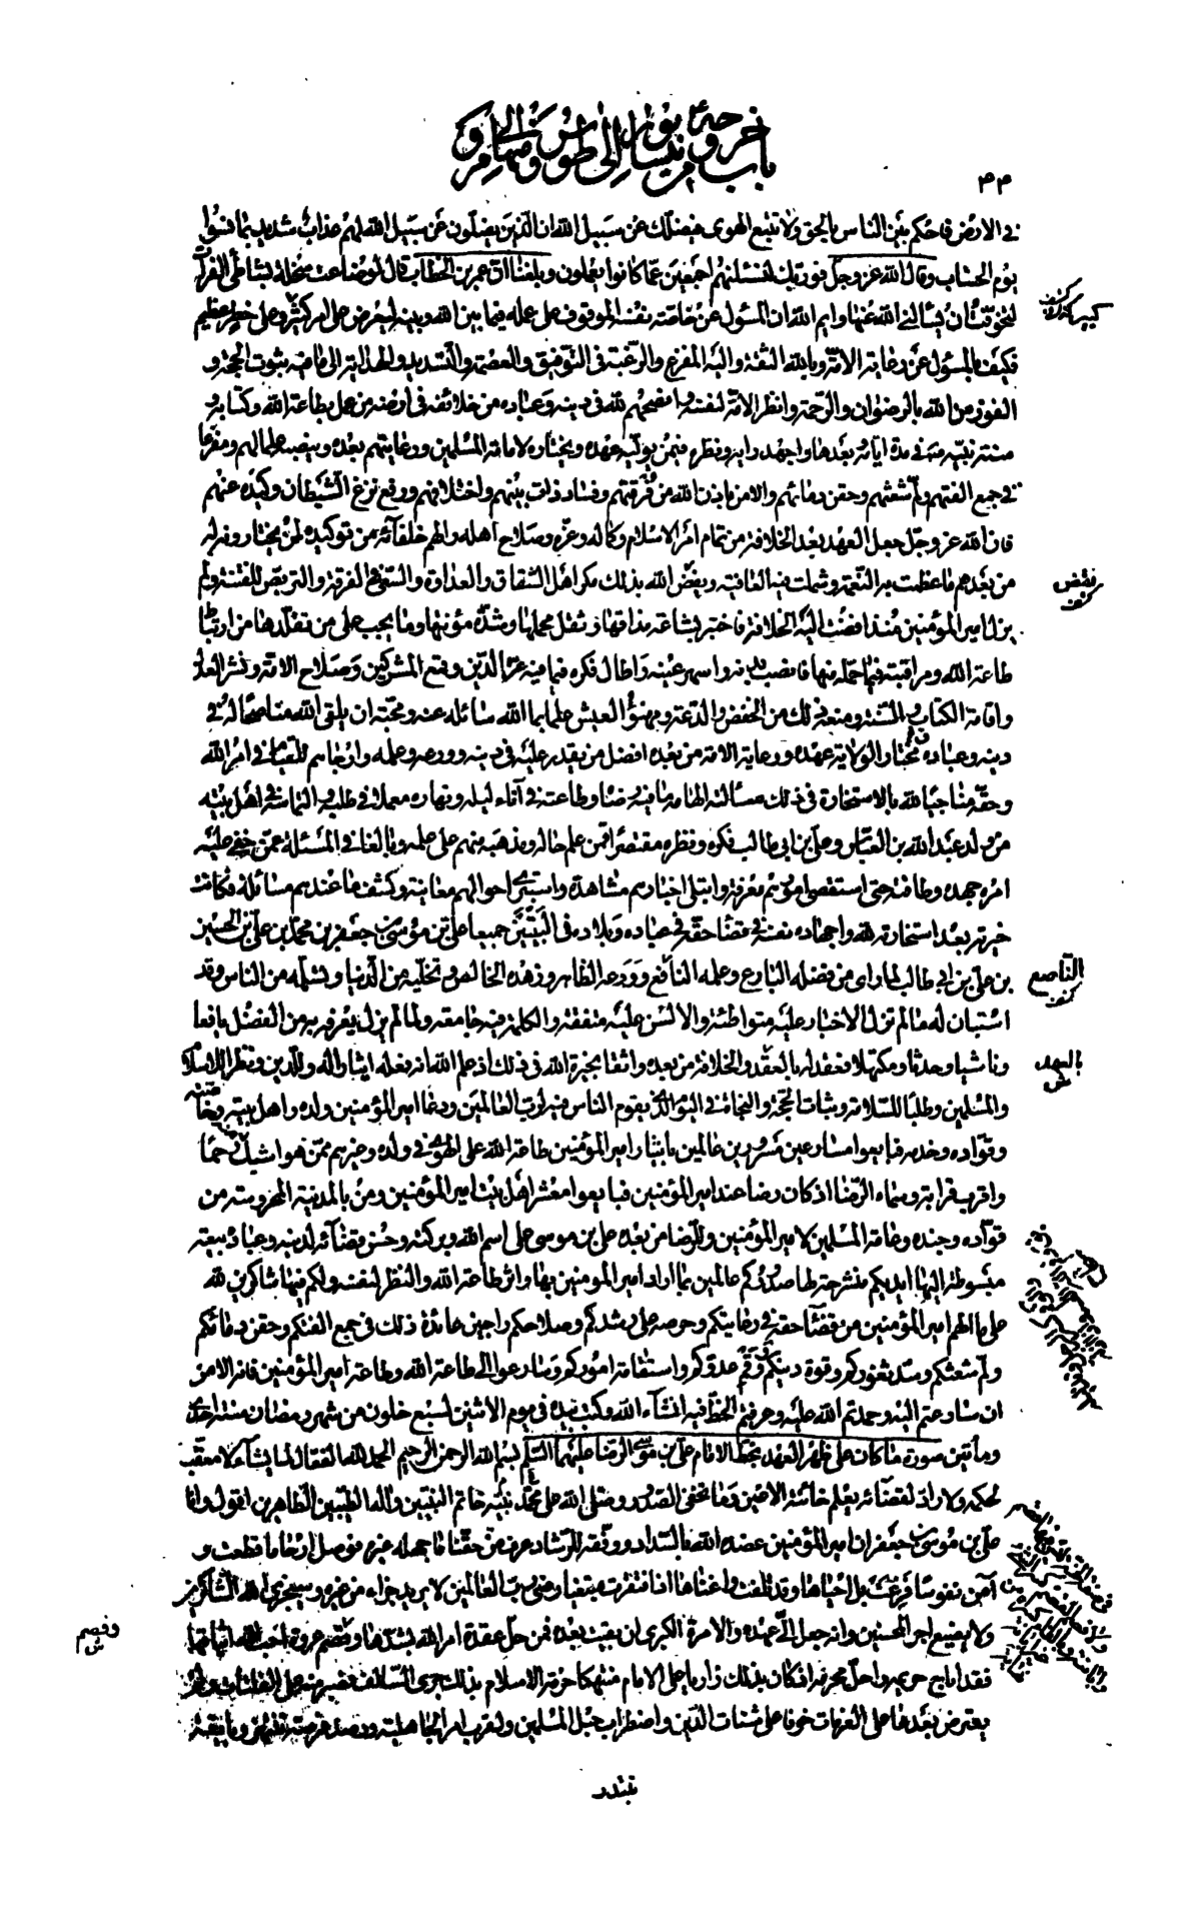 باب خروجه من نيسابور إلى طوس ومنها إلى مرو
٤٤
في الارض فاحكم بين الناس بالحق ولا تتبع الهوى فيضلك عن سبيل الله ان الذين يضلون عن سبيل الله لهم عذاب شديد بما نسوا
يوم الحساب وقال الله عز وجل فوربك لنسئلنهم اجمعين عما كانوا يعملون وبلغنا ان عمر بن الخطاب قال لو ضاعت سخلة بشاطئ الفرات
لتخوفت أن يسألني الله عنها وايم الله ان المسئول عن خاصة نفسه الموقوف على عمله فيما بين الله وبينه ليعرض على امر كبير وعلى خطر عظيم
فكيف بالمسئول عن رعاية الامة وبالله الثقة واليه المفزع والرغبة في التوفيق والعصمة والتسديد والهداية الى ما فيه ثبوت الحجة و
الفوز من الله بالرضوان والرحمة وانظر الامة لنفسه وانصحهم لله في دينه وعباده من خلائفه في ارضه من عمل بطاعة الله وكتابه و
سنة نبيه في مدة ايامه وبعدها واجهد رايه ونظره فيمن يوليه عهده ويختاره لامامة المسلمين ورعايتهم بعده وينصبه علما لهم ومفزعا
في جمع الفتهم ولم شعثهم وحقن دمائهم والامن باذن الله من فرقتهم وفساد ذات بينهم واختلافهم ورفع نزغ الشيطان وكيده عنهم
فان الله عز وجل جعل العهد بعد الخلافة من تمام امر الاسلام وكماله وعزه وصلاح اهله والهم خلفائه من توكيده لمن يختارونه له
من بعدهم ما عظمت به النعمة وشملت فيه العافية ونقض الله بذلك مكر اهل الشقاق والعداوة والسعي في الفرقة والتربص للفتنة ولم
يزل امير المؤمنين منذ افضت اليه الخلافة فاختبر بشاعة مذاقها وثقل محملها وشدة مؤنتها وما يجب على من تقلدها من ارتباط
طاعة الله ومراقبته فيما حمله منها فانصب بدنه واسهر عينه واطال فكره فيما فيه عز الدين وقمع المشركين وصلاح الامة ونشر العدل
واقامة الكتاب والسنة ومنعه ذلك من الخفض والدعة ومهنؤ العيش علما بما الله سائله عنه ومحبة ان يلقى الله مناصحا له في
دينه وعباده ومختارا لولاية عهده ورعاية الامة من بعده افضل من يقدر عليه في دينه وورعه وعلمه وارجاهم للقيام في امر الله
وحقه مناجيا لله بالاستخارة في ذلك ومسألته الهامه ما فيه رضاه وطاعته في آناء ليله ونهاره معملا في طلبه والتماسه في اهل بيته
من ولد عبد الله بن العباس وعلي بن ابي طالب فكره ونظره مقتصرا ممن علم حاله ومذهبه منهم على علمه وبالغا في المسئلة عمن خفي عليه
امره جهده وطاقته حتى استقصى امورهم معرفة وابتلى اخبارهم مشاهدة واستبرى احوالهم معاينة وكشف ما عندهم مسائلة فكانت
خيرته بعد استخارته لله واجهاده نفسه في قضاء حقه في عباده وبلاده في البيتين جميعا علي بن موسى بن جعفر بن محمد بن علي بن الحسين
بن علي بن ابي طالب لما راى من فضله البارع وعلمه النافع وورعه الظاهر وزهده الخالص وتخليه من الدنيا وتسلمه من الناس وقد
استبان له ما لم تزل الاخبار عليه متواطئة والالسن عليه متفقة والكلمة فيه جامعة ولما لم يزل يعرفه به من الفضل يافعا
وناشيا وحدثا ومكتهلا فعقد له بالعقد والخلافة من بعده واثقا بخيرة الله في ذلك اذ علم الله انه فعله ايثارا له وللدين ونظرا للاسلام
والمسلمين وطلبا للسلامة وثبات الحجة والنجاة في اليوم الذي يقوم الناس فيه لرب العالمين ودعا امير المؤمنين ولده واهل بيته وخاصته
وقواده وخدمه فبايعوا مسارعين مسرورين عالمين بايثار امير المؤمنين طاعة الله على الهوى في ولده وغيرهم ممن هو اشبك رحما
واقرب قرابة وسماه الرضا اذ كان رضا عند امير المؤمنين فبايعوا معشر اهل بيت امير المؤمنين ومن بالمدينة المحروسة من
قواده وجنده وعامة المسلمين لامير المؤمنين وللرضا من بعده علي بن موسى على اسم الله وبركته وحسن قضائه لدينه وعباده بيعة
مبسوطة اليها ايديكم منشرحة لها صدوركم عالمين بما اراد امير المؤمنين بها واثر طاعة الله والنظر لنفسه ولكم فيها شاكرين لله
على ما الهم امير المؤمنين من قضاء حقه في رعايتكم وحرصه على رشدكم وصلاحكم راجين عائدة ذلك في جمع الفتكم وحقن دمائكم
ولم شعثكم وسد ثغوركم وقوة دينكم وقمع عدوكم واستقامة اموركم وسارعوا الى طاعة الله وطاعة امير المؤمنين فانه الامن
ان سارعتم اليه وحمدتم الله عليه وعرفتم الحظ فيه انشاء الله وكتب بيده في يوم الاثنين لسبع خلون من شهر رمضان سنة احدى
ومأتين صورة ما كان على ظهر العهد بخط الامام علي بن موسى الرضا عليهما السلم بسم الله الرحمن الرحيم الحمد لله الفعال لما يشاء لا معقب
لحكمه ولا راد لقضائه يعلم خائنة الاعين وما تخفي الصدور وصلى الله على محمد نبيه خاتم النبيين واله الطيبين الطاهرين اقول وانا
علي بن موسى بن جعفر ان امير المؤمنين عضده الله بالسداد ووفقه للرشاد عرف من حقنا ما جهله غيره فوصل ارحاما قطعت و
آمن نفوسا فزعت بل احياها وقد تلفت واغناها اذ افتقرت مبتغيا رضى رب العالمين لا يريد جزاء من غيره وسيجزي الله الشاكرين
ولا يضيع اجر المحسنين وانه جعل الي عهده والامرة الكبرى ان بقيت بعده فمن حل عقدة امر الله بشدها وقصم عروة احب الله ايثاقها
فقد اباح حريمه واحل محرمه اذ كان بذلك زاريا على الامام منتهكا حرمة الاسلام بذلك جرى السالف فصبر منه على الفلتات ولم
يعترض بعدها على العزمات خوفا على شتات الدين واضطراب حبل المسلمين ولقرب امر الجاهلية ورصد فرصة تنتهز وبايقة
تبتدر
كبير
كشف
نقض
كشف
الناصع
كشف
بالعهد
ش
وفصم
ش